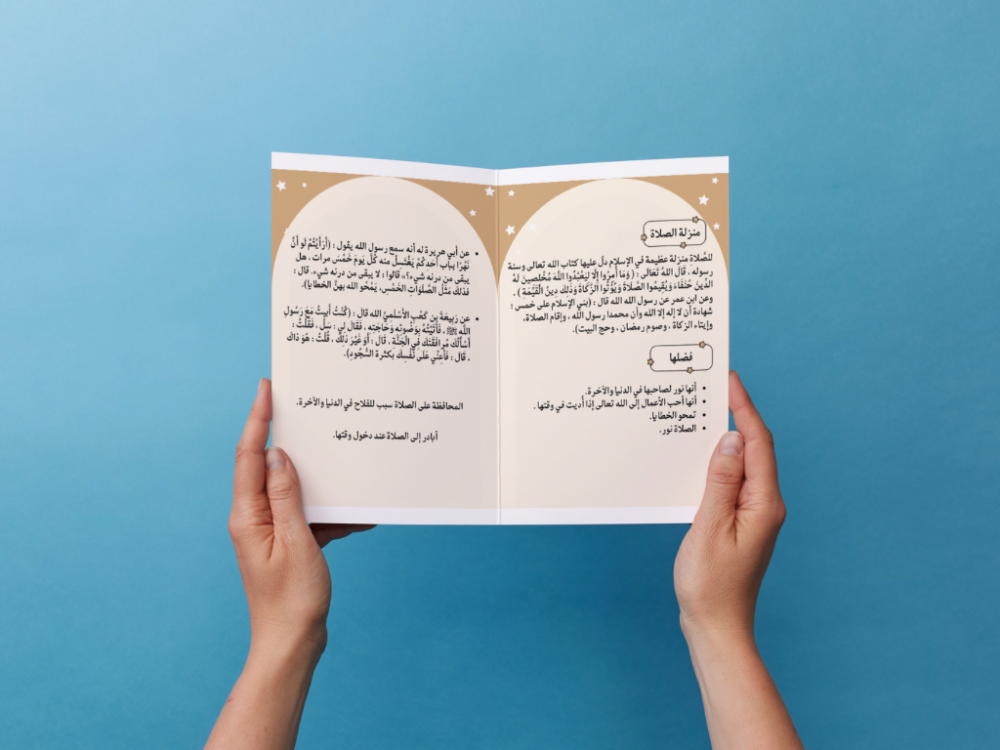 منزلة الصلاة
للصَّلاة منزلة عظيمة في الإسلام دلَّ عليها كتاب الله تعالى وسنة
رسوله . قال اللهُ تَعَالَى : ( وَمَا أُمِرُوا إِلَّا لِيَعْبُدُوا اللَّهَ مُخْلِصِينَ لَهُ
الدِّينَ حُنَفَاءَ وَيُقِيمُوا الصَّلَاةَ وَيُؤْتُوا الزَّكَاةَ وَذَلِكَ دِينُ الْقَيِّمَةِ ) .
وعن ابن عمر عن رسول الله الله قال : (بني الإسلام على خمس :
شهادة أن لا إله إلا الله وأن محمدا رسول الله ، وإقام الصلاة،
وإيتاء الزكاة ، وصوم رمضان ، وحج البيت).
فضلها
• أنها نور لصاحبها في الدنيا والآخرة.
• أنها أحب الأعمال إلى الله تعالى إذا أُديت في وقتها .
• تمحو الخطايا.
• الصلاة نور.
• عن أبي هريرة له أنه سمع رسول الله يقول : (أَرَأَيْتُمْ لو أنَّ
نَهْرًا بباب أحدكُمْ يَغْتَسِلُ منه كُلَّ يَوم خَمْسَ مرات ، هل
يبقى من درنه شيء؟» قالوا : لا يبقى من درنه شيء. قال :
فذلك مَثَلُ الصَّلَوَاتِ الخَمْسِ، يَمْحُو الله بهنَّ الخطايا).
• عن رَبِيعَةَ بن كَعْبِ الأَسْلَمِيِّ الله قال : (كُنْتُ أَبِيتُ مَعَ رَسُولِ
اللَّهِ ﷺ ، فَأَتَيْتُهُ بوَضُوئِهِ وَحَاجَتِهِ ، فَقَالَ لِي : سَلْ ، فَقُلْتُ :
أَسْأَلُكَ مُرَافَقَتَكَ فِي الْجَنَّةِ ، قَالَ : أَوَ غَيْرَ ذَلِكَ ، قُلْتُ : هُوَ ذَاكَ
، قَالَ : فَأَعِنِّي عَلَى نَفْسِكَ بكَثْرَةِ السُّجُودِ).
المحافظة على الصلاة سبب للفلاح في الدنيا والآخرة.
أبادر إلى الصلاة عند دخول وقتها.